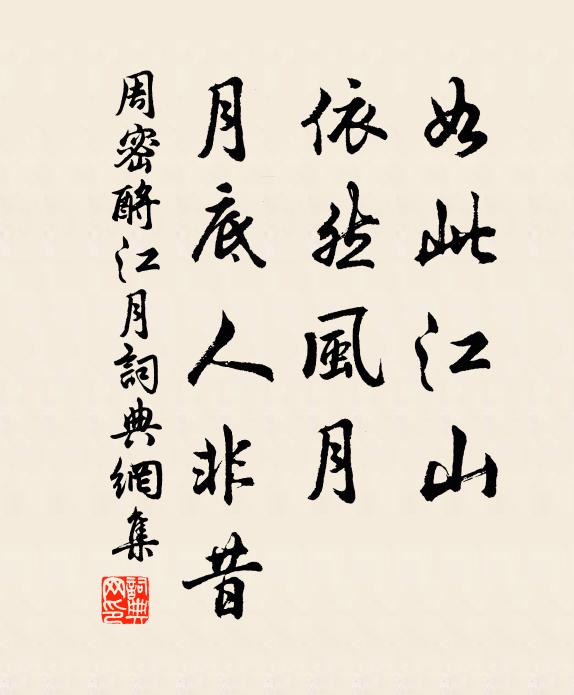 如此江山
依然風月
月底人非昔
周密酹江月詞典網集
詞典
网印